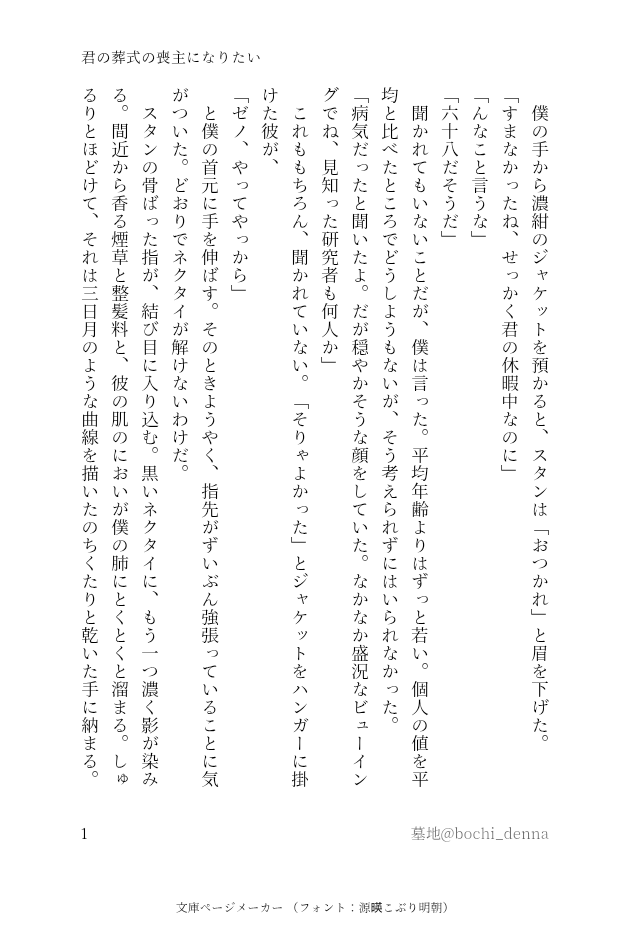 君の葬式の喪主になりたい
僕の手から濃紺のジャケットを預かると、スタンは「おつかれ」と眉を下げた。
「すまなかったね、せっかく君の休暇中なのに」
「んなこと言うな」
「六十八だそうだ」
聞かれてもいないことだが、僕は言った。平均年齢よりはずっと若い。個人の値を平
均と比べたところでどうしようもないが、そう考えられずにはいられなかった。
「病気だったと聞いたよ。だが穏やかそうな顔をしていた。なかなか盛況なビューイン
グでね、見知った研究者も何人か」
これももちろん、聞かれていない。「そりゃよかった」とジャケットをハンガーに掛
けた彼が、
「ゼノ、やってやっから」
と僕の首元に手を伸ばす。そのときようやく、指先がずいぶん強張っていることに気
がついた。どおりでネクタイが解けないわけだ。
スタンの骨ばった指が、結び目に入り込む。黒いネクタイに、もう一つ濃く影が染み
る。間近から香る煙草と整髪料と、彼の肌のにおいが僕の肺にとくとくと溜まる。しゅ
るりとほどけて、それは三日月のような曲線を描いたのちくたりと乾いた手に納まる。
1
墓地@bochi_denna
文庫ページメーカー （フォント：源暎こぶり明朝）